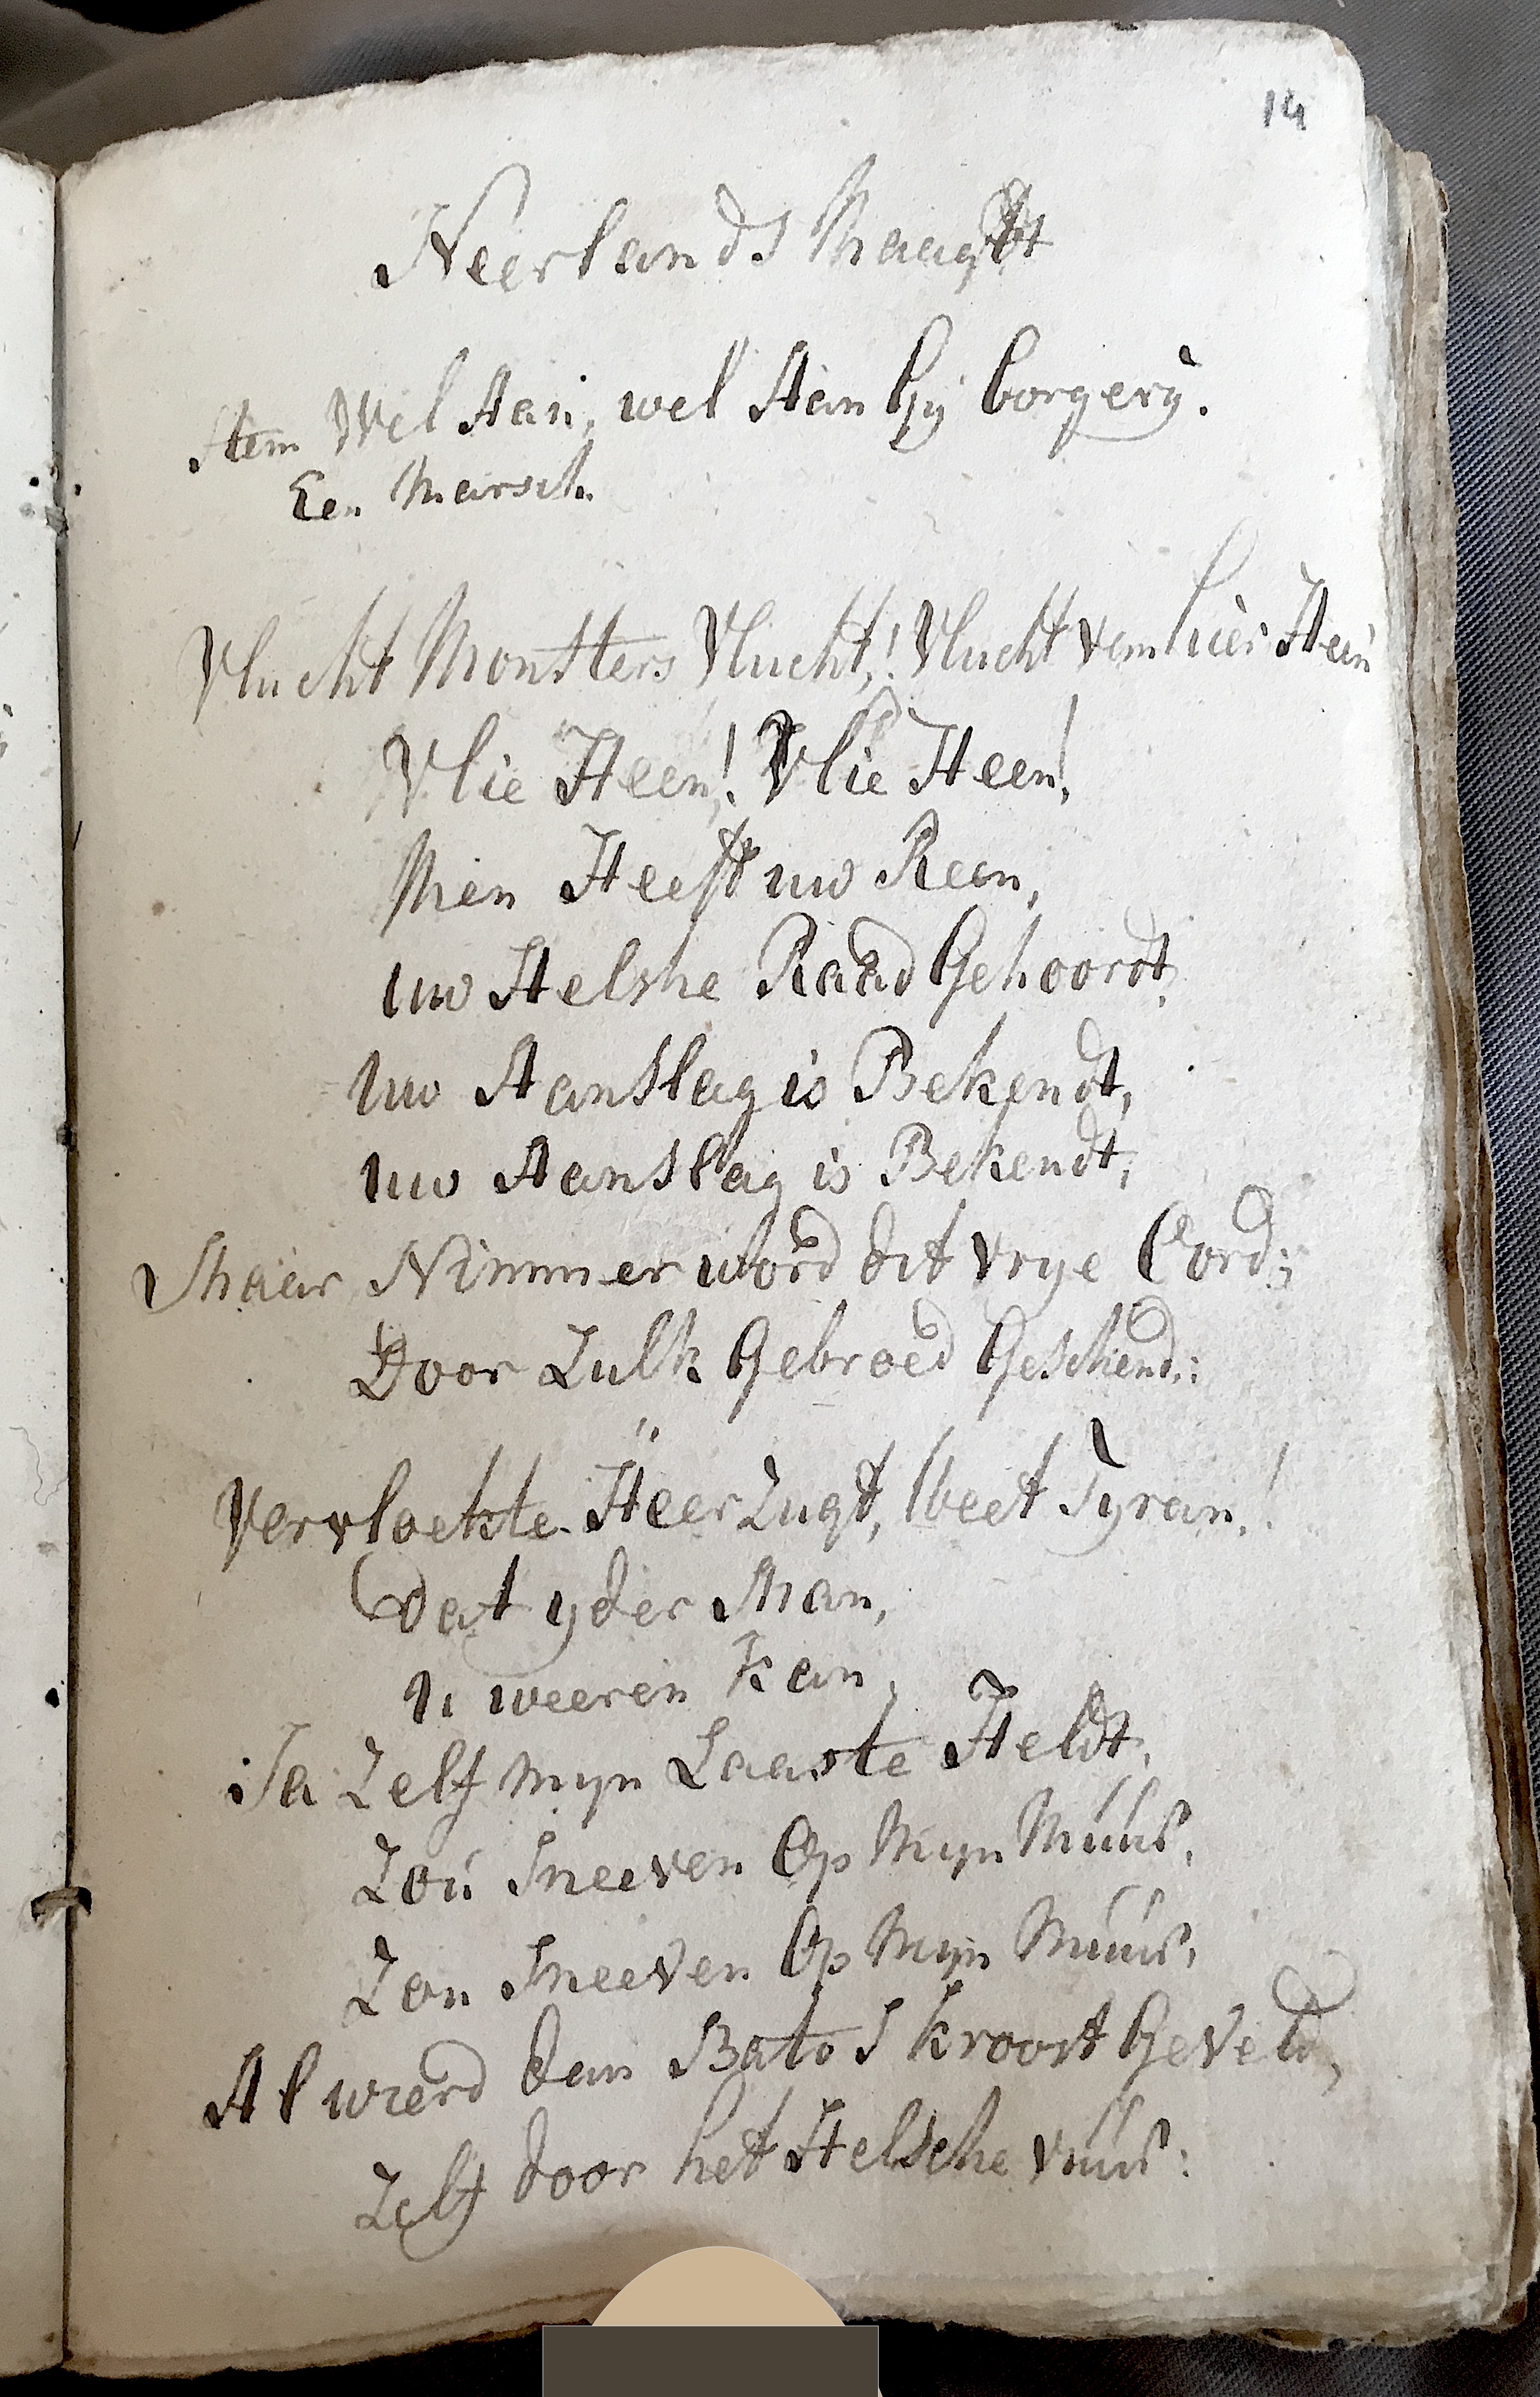 14
Neerlands Maagdt
Stem Wel Aan, wel Aan Gy borgery.
Een Marsch.
Vlucht Monsters Vlucht,! Vlucht van hier Heen
Vlie Heen,! Vlie Heen,!
Men Heeft uw Reen,
uw Helshe Raad Gehoordt,
uw Aanslag is Bekendt,
uw Aanslag is Bekendt,
Maar Nimmer word dit vrye Oord;
Door Zulk Gebroed Geschend;:
Vervloekte Heerzugt, weet Tyran,!
Dat yder Man,
U weeren Kan,
Ja Zelf myn Laaste Heldt,
Zou Sneeven Op Myn Muur,
Zou Sneeven Op Myn Muur,
Al wierd dan Bato's kroost Geveld,
Zelf door het Helsche vuur: